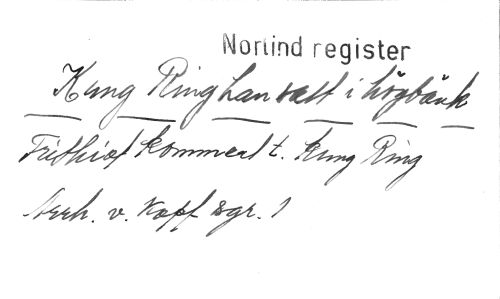 Norlind register
Kung Ring han satt i högbänk
Frithiof kommer t. Kung Ring
v. Kopf sgr. 1